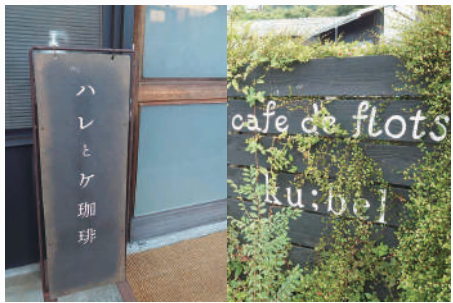 ハレとケ珈琲
cafe de flots
ku:bel